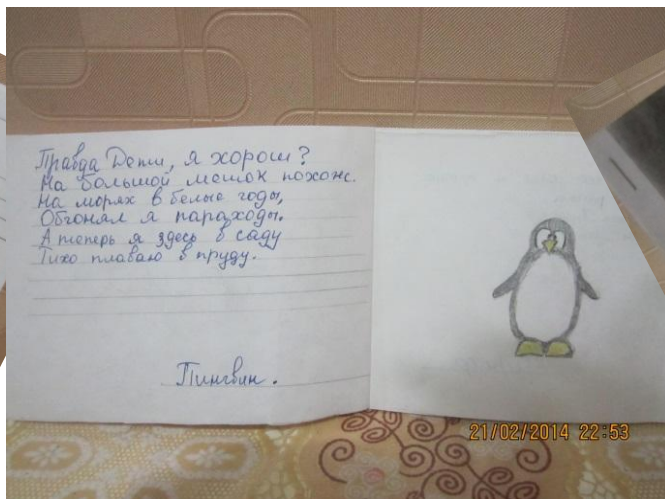 Правда Дети, я хорош?
На большой мешок похож.
На морях в белые годы,
Обгонял я параходы.
А теперь я здесь в саду
Тихо плаваю в пруду.
Пингвин.
21/02/2014 22:53